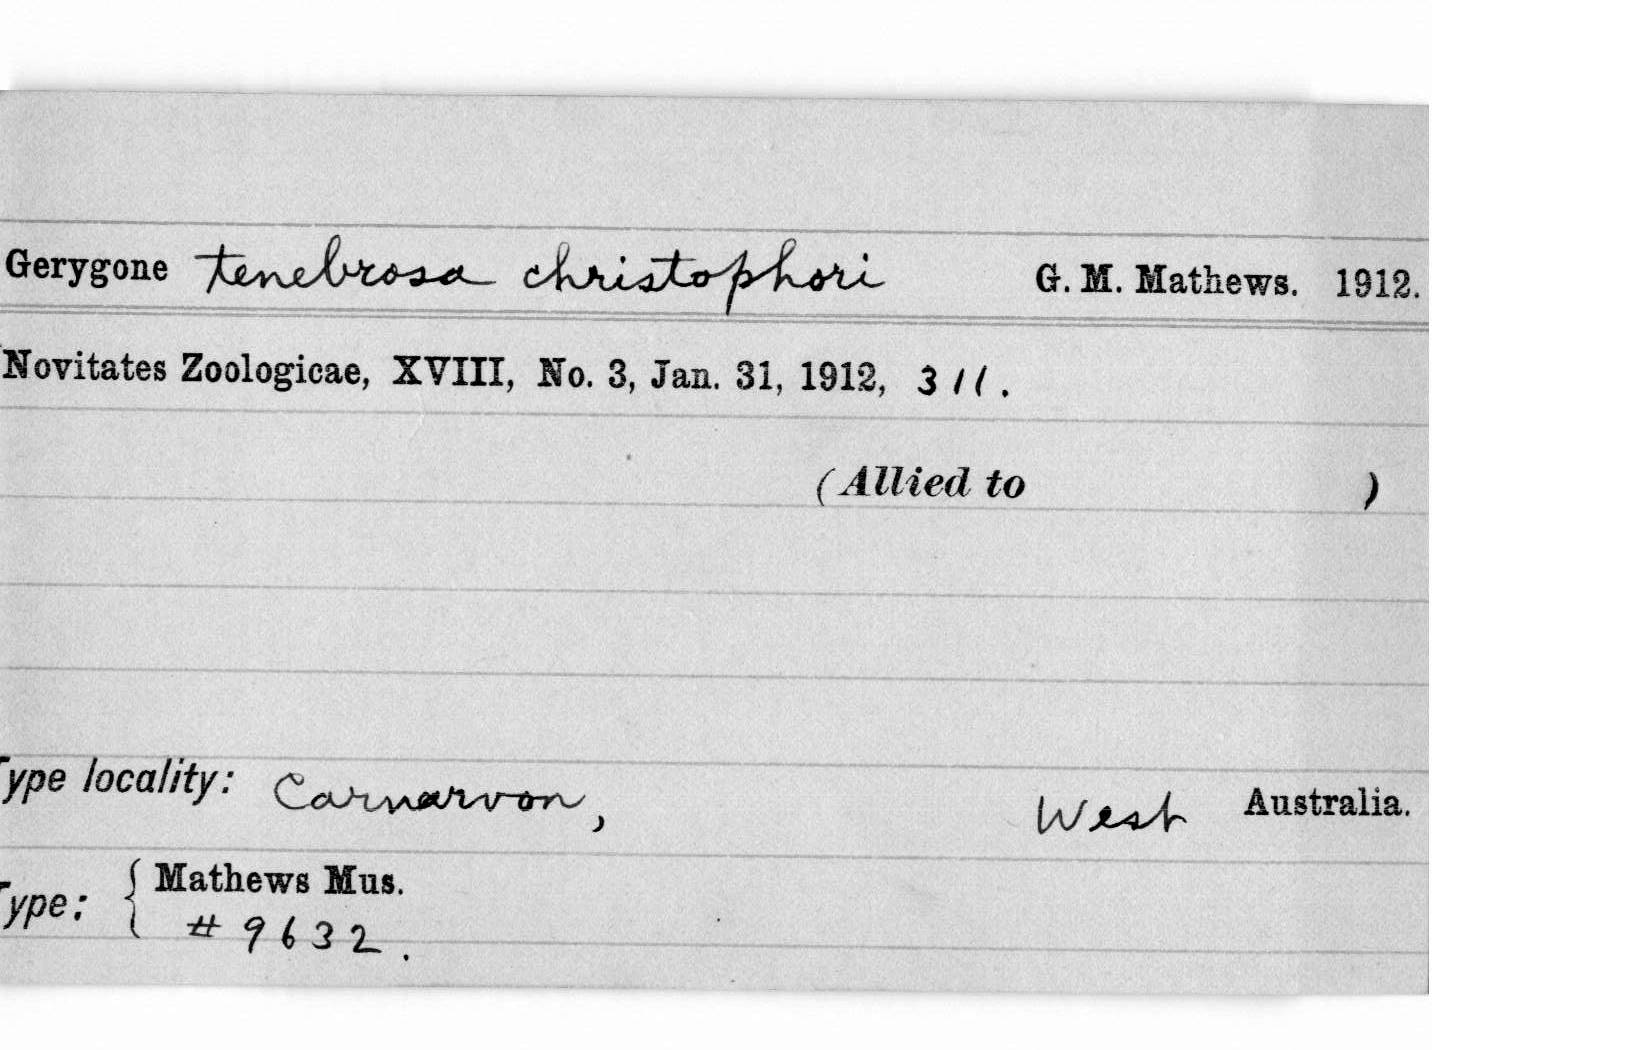 Gerygone tenebrosa christophori G. M. Mathews. 1912.
Novitates Zoologicae, XVIII, No. 3, Jan. 31, 1912, 311.
(Allied to )
Type locality: Carnarvon, West Australia.
Type: { Mathews Mus.
# 9632.